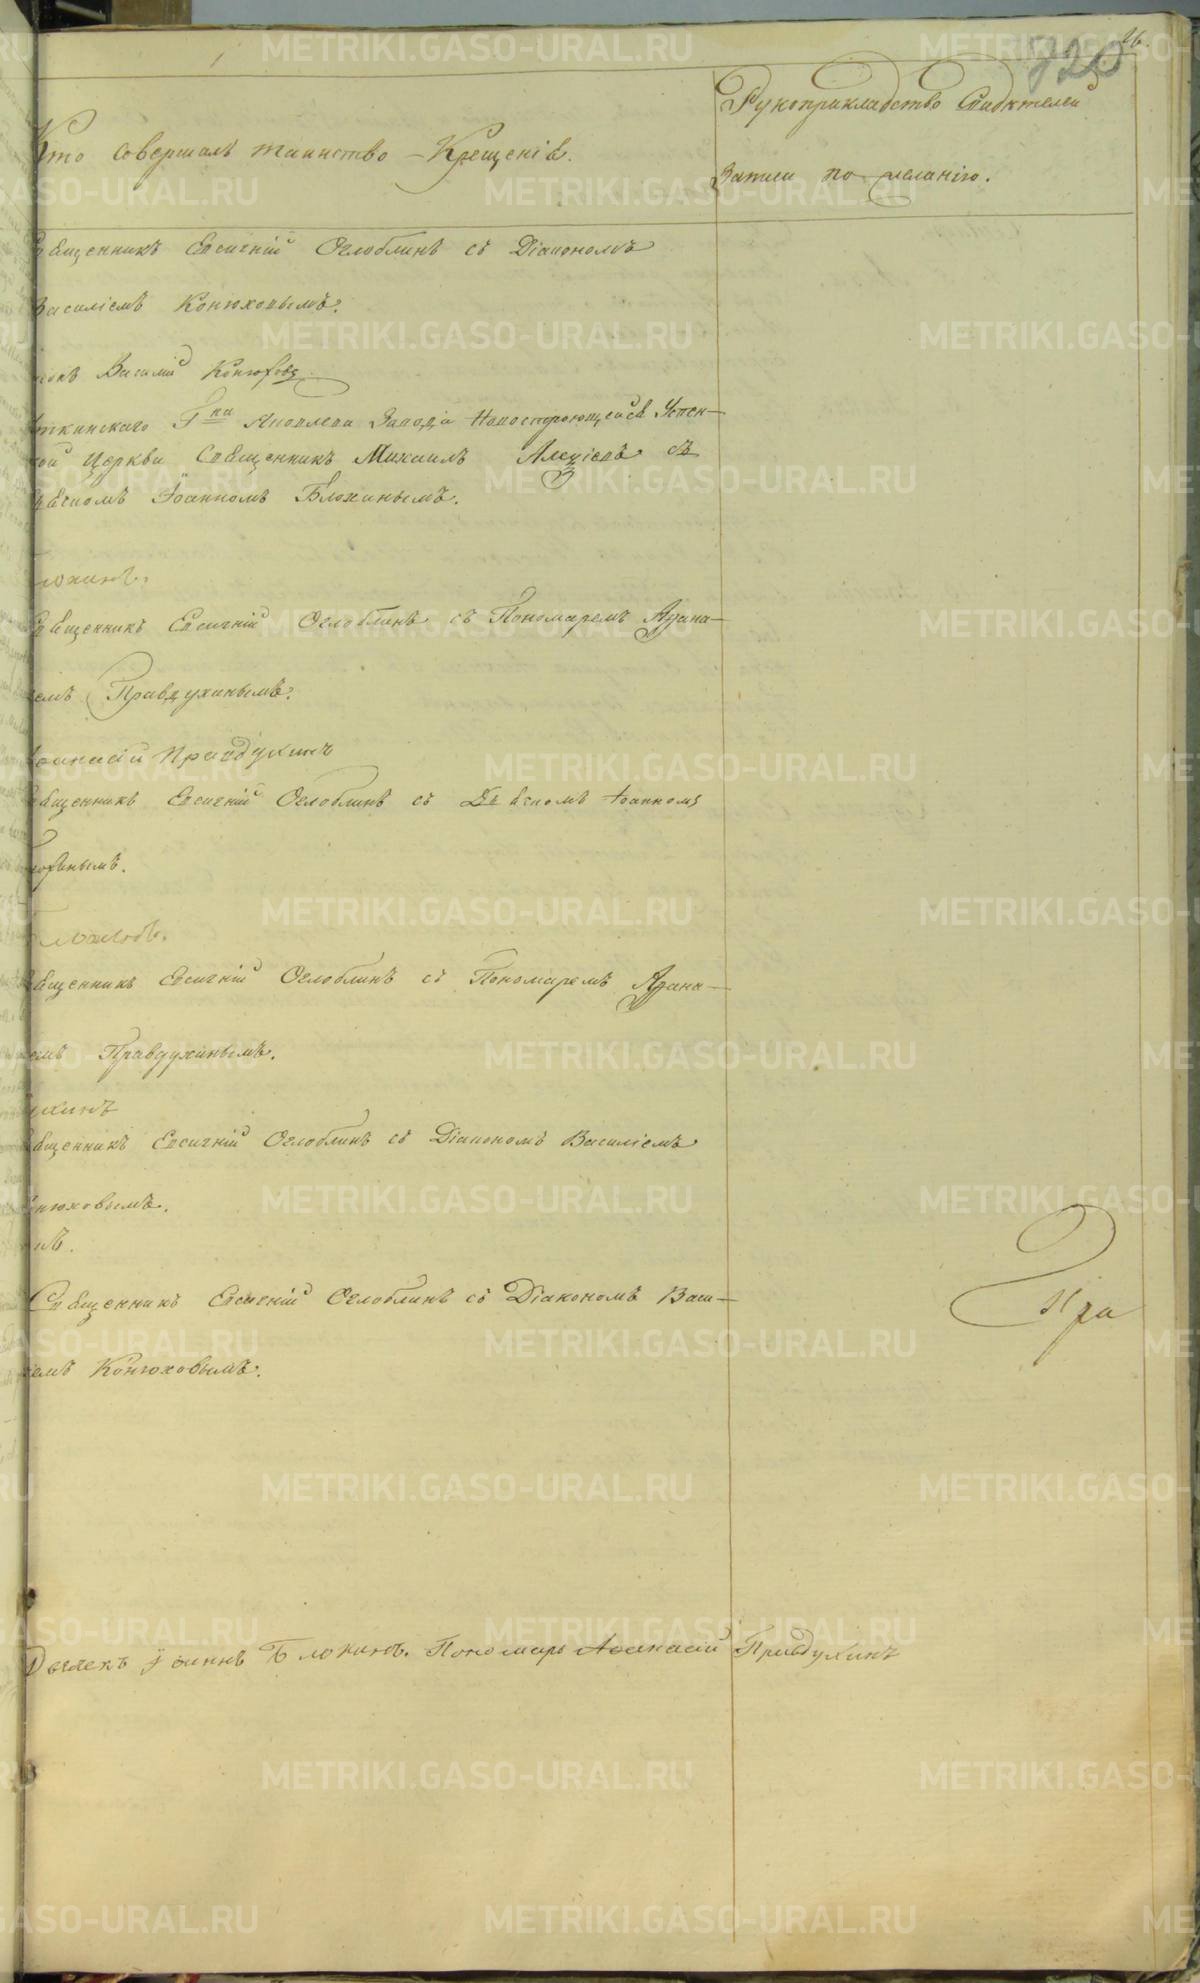 26.
920
Рукоприкладство Свидѣтелей
Кто совершалъ таинство Крещенія.
записи по желанію.
Священникъ Евсигній Оглоблинъ съ Діакономъ
Василіемъ Конюховымъ.
Василій Конюховъ
Яковлева Завода Новостроющейся Успен-
ской Церкви Священникъ Михаилъ Алексіевъ съ
Іоанномъ Блохинымъ.
Священникъ Евсигній Оглоблинъ съ Пономаремъ Афана-
сіемъ Правдухинымъ.
Афанасій Правдухинъ
Священникъ Евсигній Оглоблинъ съ Дьячкомъ Іоанномъ
Блохинымъ.
Священникъ Евсигній Оглоблинъ съ Пономаремъ Афана-
сіемъ Правдухинымъ.
Священникъ Евсигній Оглоблинъ съ Діакономъ Василіемъ
Конюховымъ.
Священникъ Евсигній Оглоблинъ съ Діакономъ Васи-
ліемъ Конюховымъ.
Дьячекъ Іоаннъ Блохинъ. Пономарь Афанасій Правдухинъ